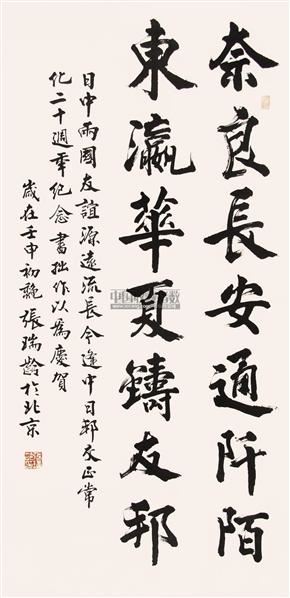 奈良長安通阡陌
東瀛華夏鑄友邦
日中兩國友誼源遠流長今逢中日邦交正常
化二十週年紀念書拙作以為慶賀
歲在壬申初魏張瑞齡於北京